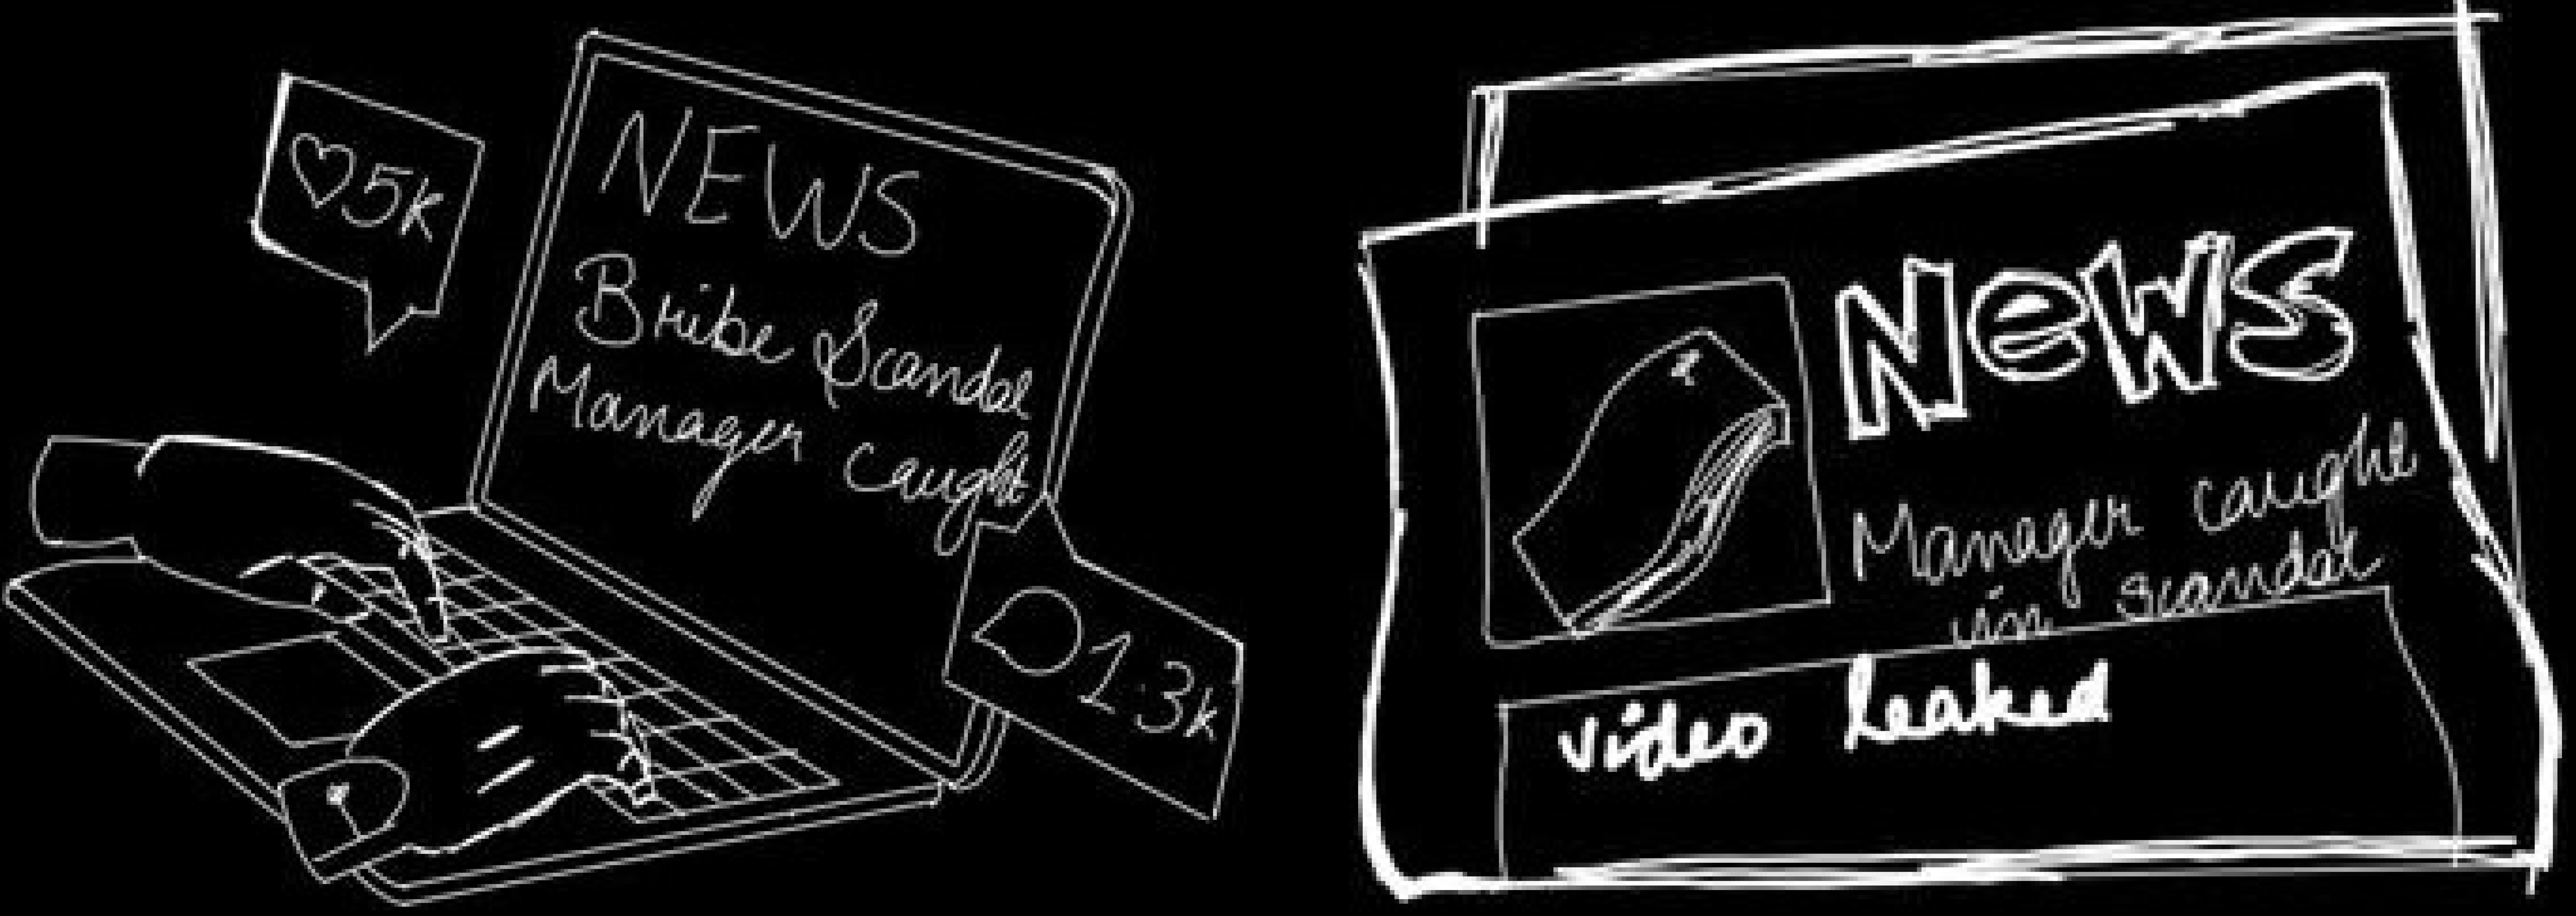 ♡5k
NEWS
Bribe Scandal
Manager caught
1.3k
NeWS
Manager caught
in scandal
video leaked